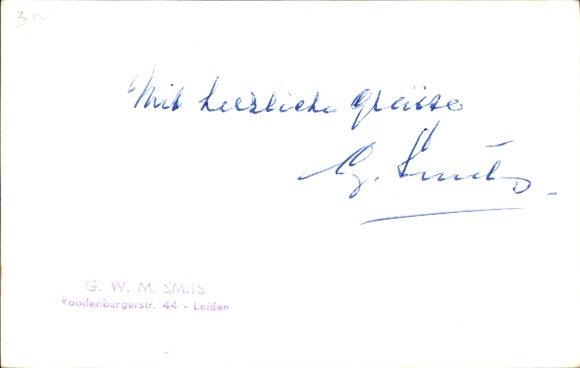 3.-
Mit herzliche Grüsse
G. Smits.
G. W. M. SMITS
Roodenburgerstr. 44 - Leiden